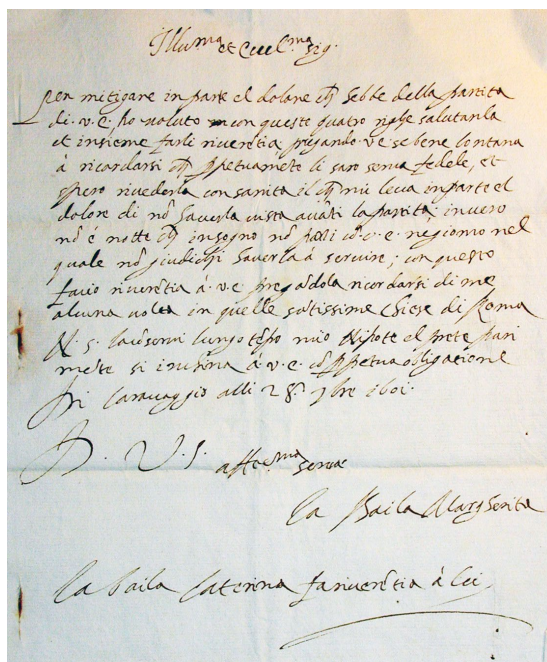 Illu.ma et Ecc.ma sig.
Per mitigare in parte el dolore ch Hebbe della partita
di. v. e, ho voluto con queste quatro righe salutarla
et insieme farli riverentia pregando. v e sebene lontana
á ricordarsi ch ppetuaméte li saro serva fedele, et
spero rivederla con sanita il ch mi leva in parte el
dolore di nō haverla vista avāti la partita; in vero
nō é notte ch in sogno nō parli cō. v. e. ne giorno nel
quale nō giudichi haverla á servire; con questo
facio riverētia á. v. e pregādola ricordarsi di me
alcuna volta in quelle santissime Chiese di Roma
N. S. la cōservi lungo tēpo mio Nipote el prete pari
mēte si inchina á v. e. cō ppetua obligatione
Di Caravaggio alli 28. 7bre 1601.
D. V. S. affe.ma serva
La Baila Margherita
La Baila Caterina fa riverētia á lei